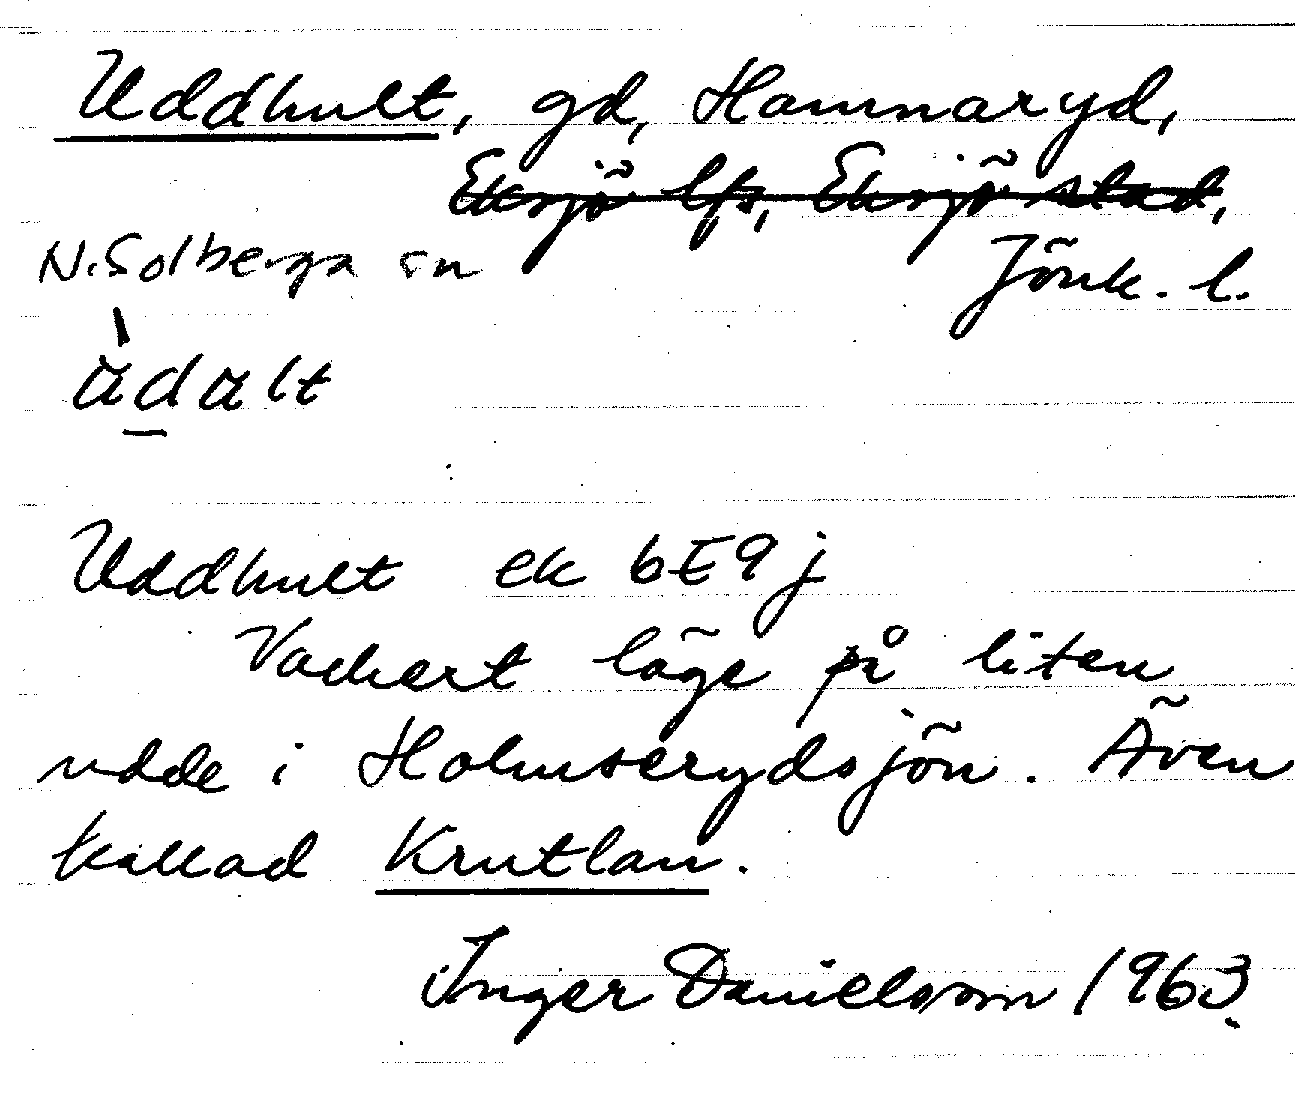 Uddhult, gd, Hamnaryd,
Eksjö lfs, Eksjö stad,
N. Solberga sn Jönk. l.
ùdalt
Uddhult ek 6E9j
Vackert läge på liten
udde i Holmserydsjön. Även
kallad Krutlan.
Inger Danielsson 1963.